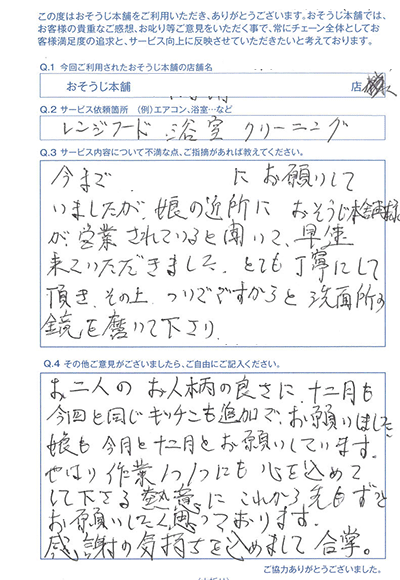 この度はおそうじ本舗をご利用いただき、ありがとうございます。おそうじ本舗では、
お客様の貴重なご感想、お叱り等ご意見をいただく事で、常にチェーン全体としてお
客様満足度の追求と、サービス向上に反映させていただきたいと考えております。
Q.1 今回ご利用されたおそうじ本舗の店舗名
おそうじ本舗 店
Q.2 サービス依頼箇所 (例)エアコン、浴室…など
レンジフード 浴室 クリーニング
Q.3 サービス内容について不満な点、ご指摘があれば教えてください。
今まで にお願いして
いましたが、娘の近所に おそうじ本舗様
が営業されていると聞いて、早速
来ていただきました。とても丁寧にして
頂き、その上、ついでですからと洗面所の
鏡を磨いて下さり
Q.4 その他ご意見がございましたら、ご自由にご記入ください。
お二人の お人柄の良さに 十二月も
今回と同じキッチンも追加で、お願いしました
娘も今月と十二月とお願いしています。
やはり作業1つ1つにも心を込めて
して下さる熱意に これから先もずっと
お願いしたく思っております。
感謝の気持ちを込めまして 合掌。
ご協力ありがとうございました。